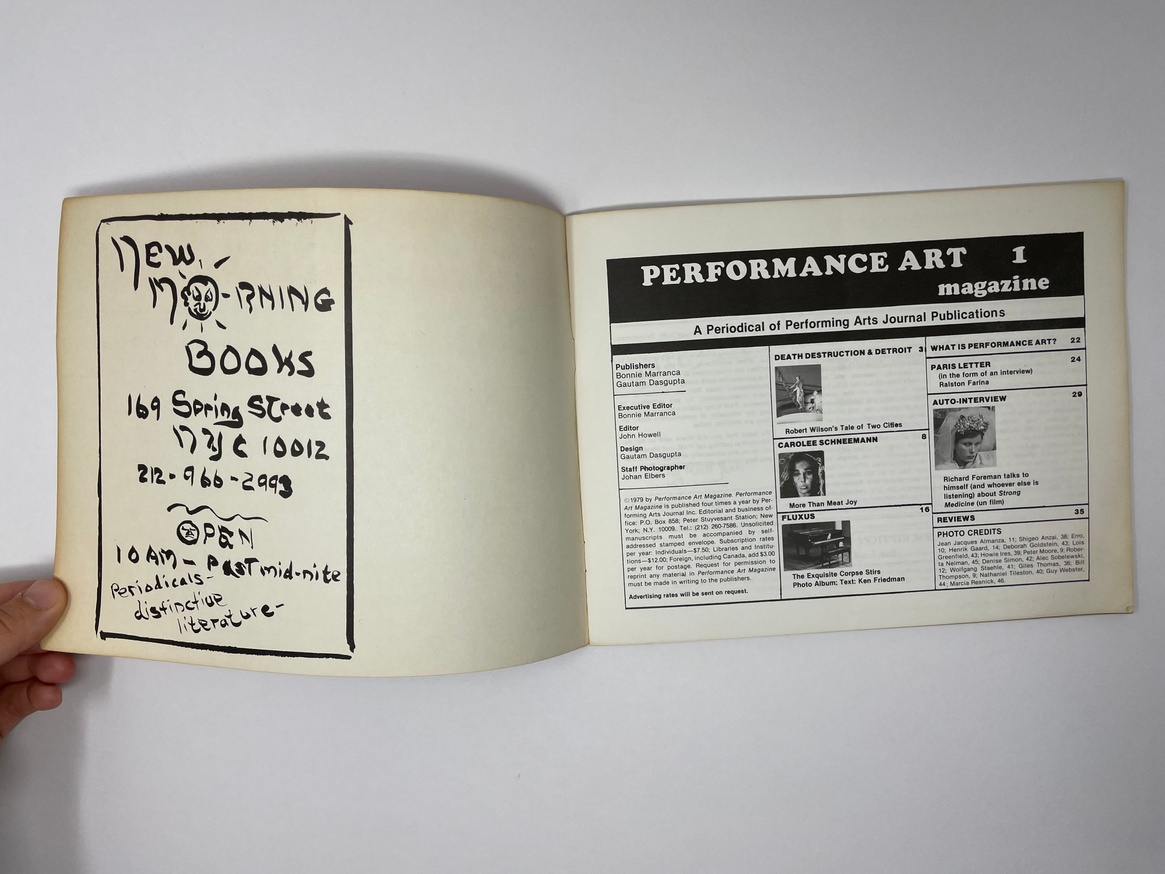 NEW
MORNING
BOOKS
169 Spring Street
NYC 10012
212-966-2993
OPEN
10 AM - PAST mid-nite
Periodicals-
distinctive
literature-
PERFORMANCE ART 1
magazine
A Periodical of Performing Arts Journal Publications
Publishers
Bonnie Marranca
Gautam Dasgupta
Executive Editor
Bonnie Marranca
Editor
John Howell
Design
Gautam Dasgupta
Staff Photographer
Johan Elbers
©1979 by Performance Art Magazine. Performance
Art Magazine is published four times a year by Per-
forming Arts Journal Inc. Editorial and business of-
fice: P.O. Box 858; Peter Stuyvesant Station; New
York, N.Y. 10009. Tel.: (212) 260-7586. Unsolicited
manuscripts must be accompanied by self-
addressed stamped envelope. Subscription rates
per year: Individuals—$7.50; Libraries and Institu-
tions—$12.00; Foreign, including Canada, add $3.00
per year for postage. Request for permission to
reprint any material in Performance Art Magazine
must be made in writing to the publishers.
Advertising rates will be sent on request.
DEATH DESTRUCTION & DETROIT 3
Robert Wilson's Tale of Two Cities
CAROLEE SCHNEEMANN 8
More Than Meat Joy
FLUXUS 16
The Exquisite Corpse Stirs
Photo Album: Text: Ken Friedman
WHAT IS PERFORMANCE ART? 22
PARIS LETTER 24
(in the form of an interview)
Ralston Farina
AUTO-INTERVIEW 29
Richard Foreman talks to
himself (and whoever else is
listening) about Strong
Medicine (un film)
REVIEWS 35
PHOTO CREDITS
Jean Jacques Almanza, 11; Shigeo Anzai, 38; Erro,
10; Henrik Gaard, 14; Deborah Goldstein, 43; Lois
Greenfield, 43; Howie Ires, 39; Peter Moore, 9; Rober-
ta Neiman, 45; Denise Simon, 42; Alec Sobolewski,
12; Wolfgang Staehle, 41; Giles Thomas, 36; Bill
Thompson, 9; Nathaniel Tileston, 40; Guy Webster,
44; Marcia Resnick, 46.